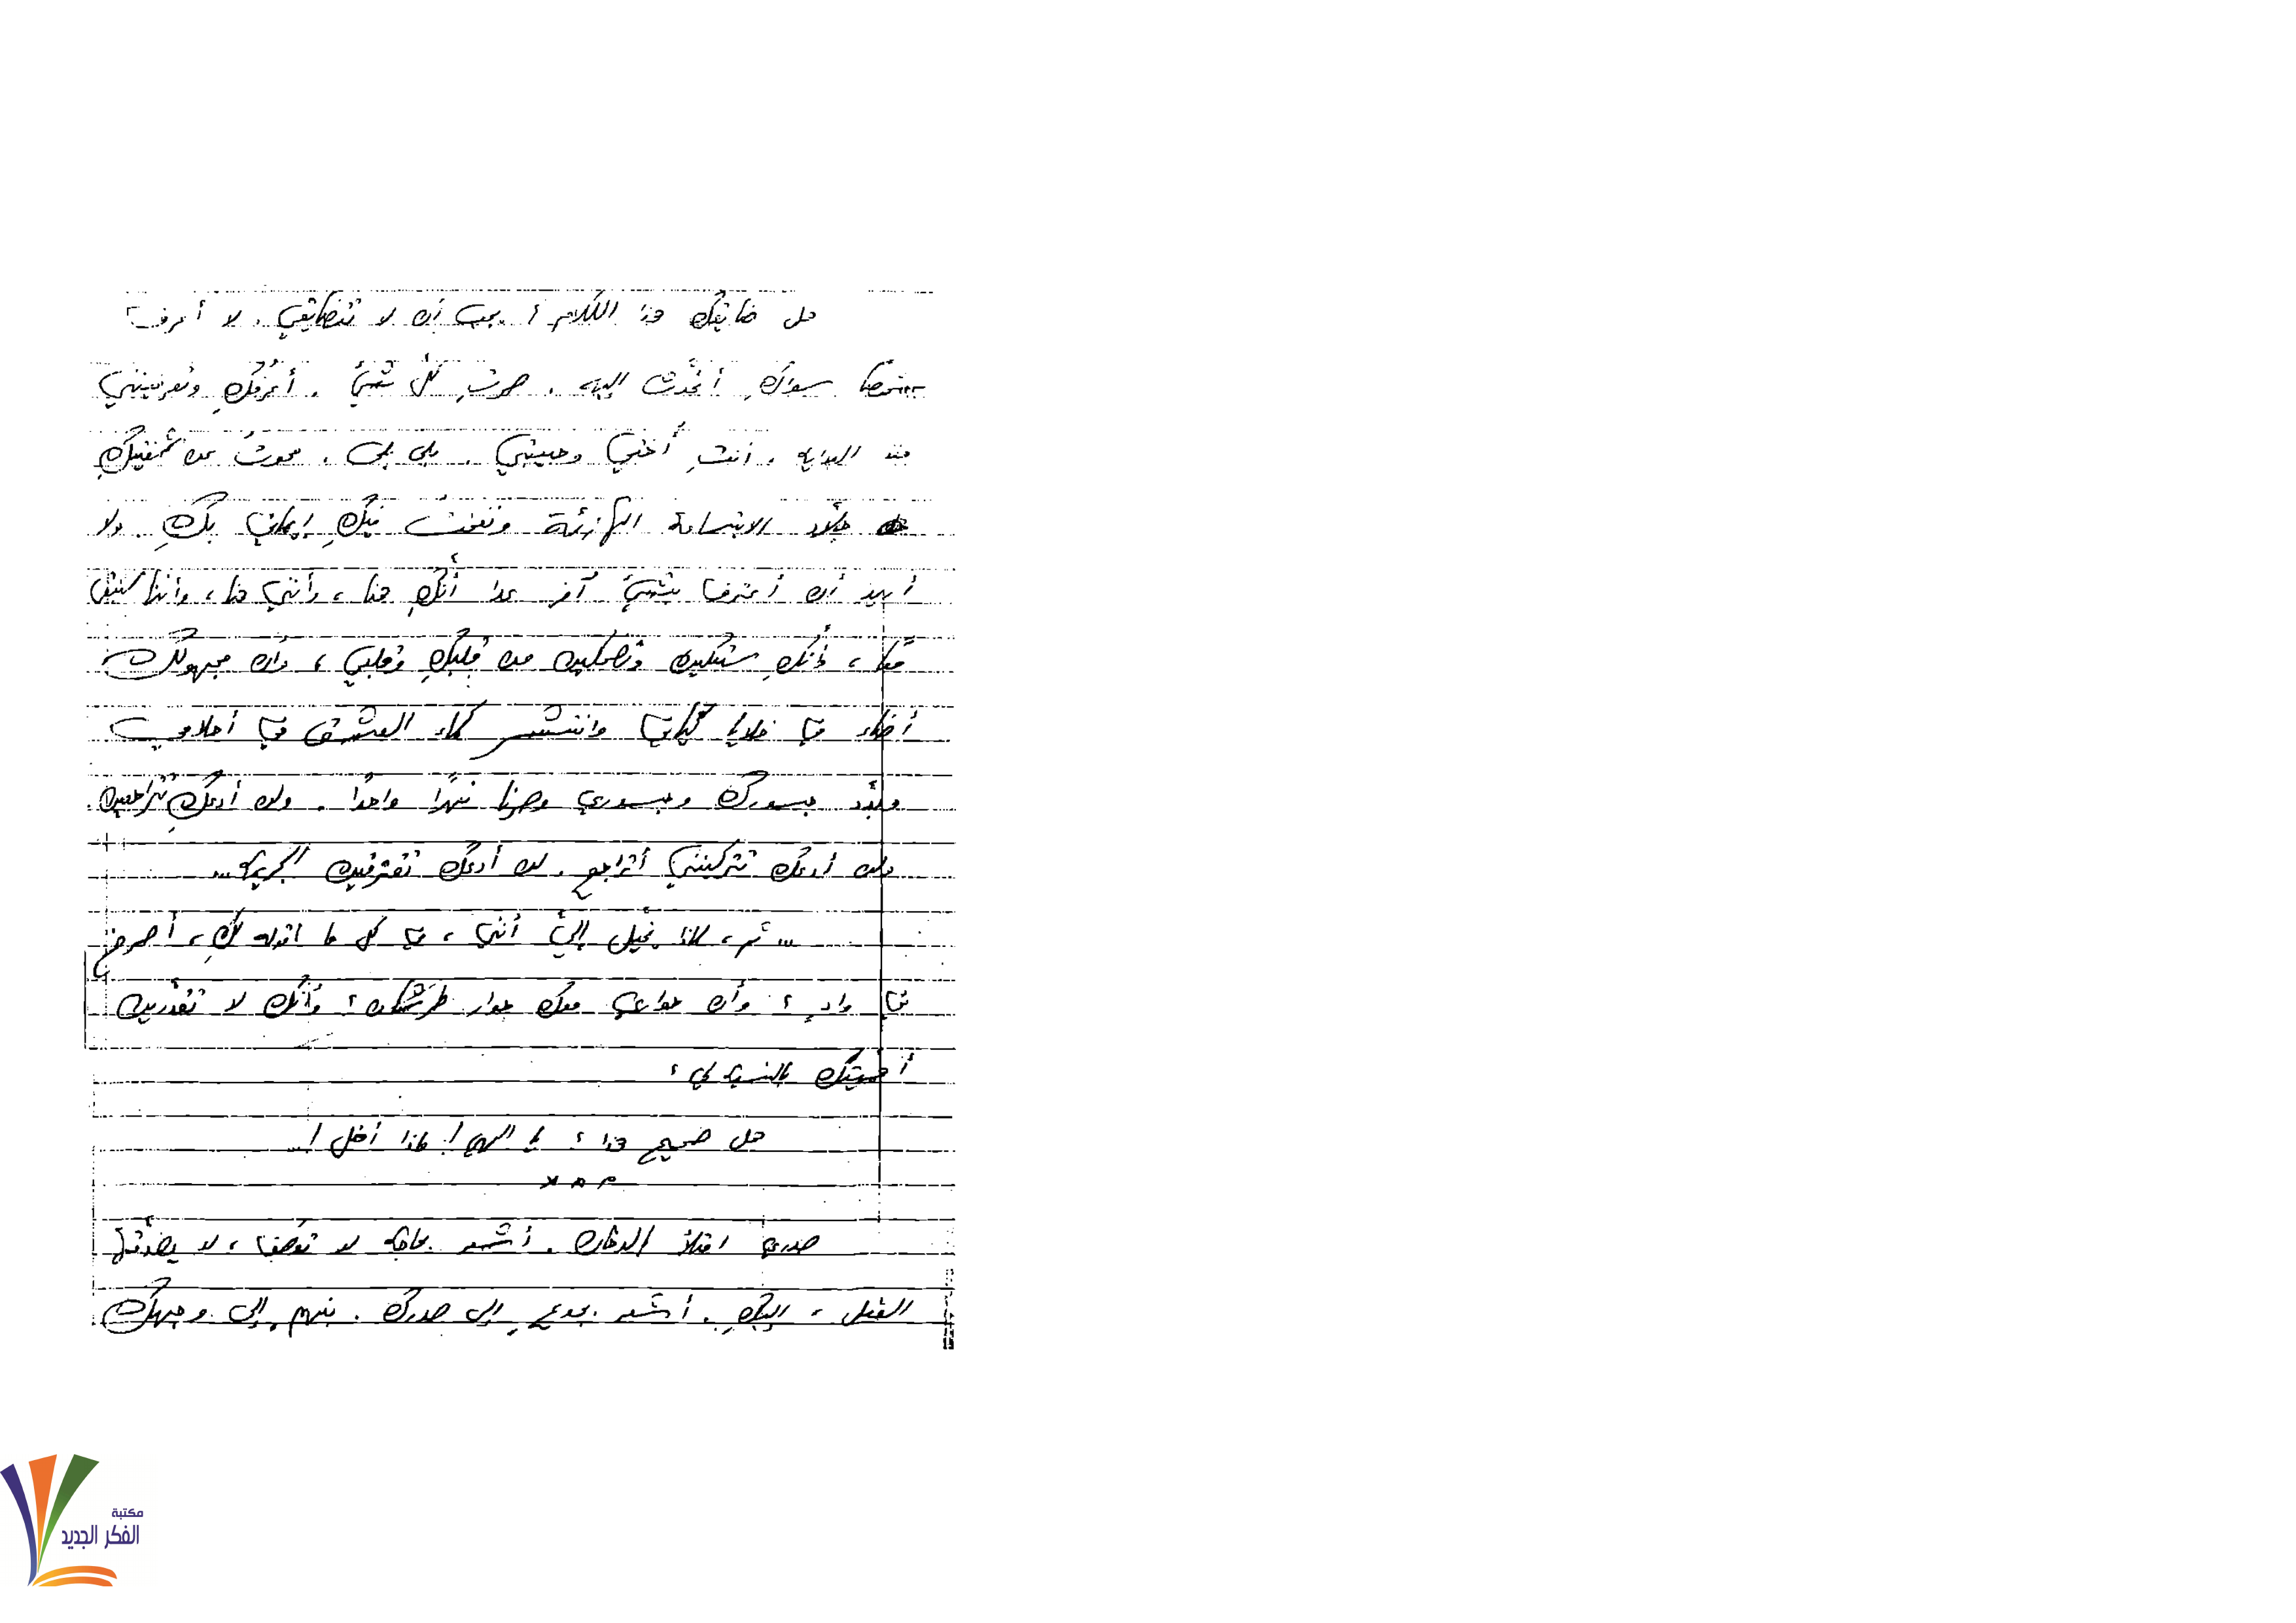 هل ضايقك هذا الكلام؟ يجب أن لا تتضايقي. لا أعرف
شخصًا سواكِ أتحدّث إليه. صرتِ كلّ شيء. أعرفُكِ وتعرفينني
منذ البداية. أنتِ أختي وحبيبتي. بلى بلى. محوتُ عن شفتيكِ
جليد الابتسامة الهازئة ونفختُ فيكِ إيماني بكِ. ولا
أريد أن أعترف بشيء آخر عدا أنّكِ هنا، وأنني هنا، وأننا سنبقى
معًا، وأنكِ ستبكين وتضحكين من قلبكِ وقلبي، وأن مجهولك
أضاء في خلايا كياني وانتشر كماء العشق في أحلامي
ومدّد جسورك وجسوري وصرنا نهرًا واحدًا. ولن أدعكِ تتراجعين.
ولن أدعك تتركينني أتراجع. لن أدعك تقترفين الجريمة...
... ثم، لماذا يُخيّل إليّ أنني، في كل ما أقوله لكِ، أصرخ
في وادٍ؟ وأن حواري معك حوار طرشان؟ وأنّك لا تقدّرين
أهميتك بالنسبة لي؟
هل صحيح هذا؟ يا إلهي! ماذا أفعل!...
× × ×
صدري امتلأ بالدخان. أشعر بحاجة لا توصف، لا يصدّقها
العقل، إليكِ. أشعر بجوعٍ إلى صدرك. بنهم إلى وجهك
مكتبة
الفكر الجديد